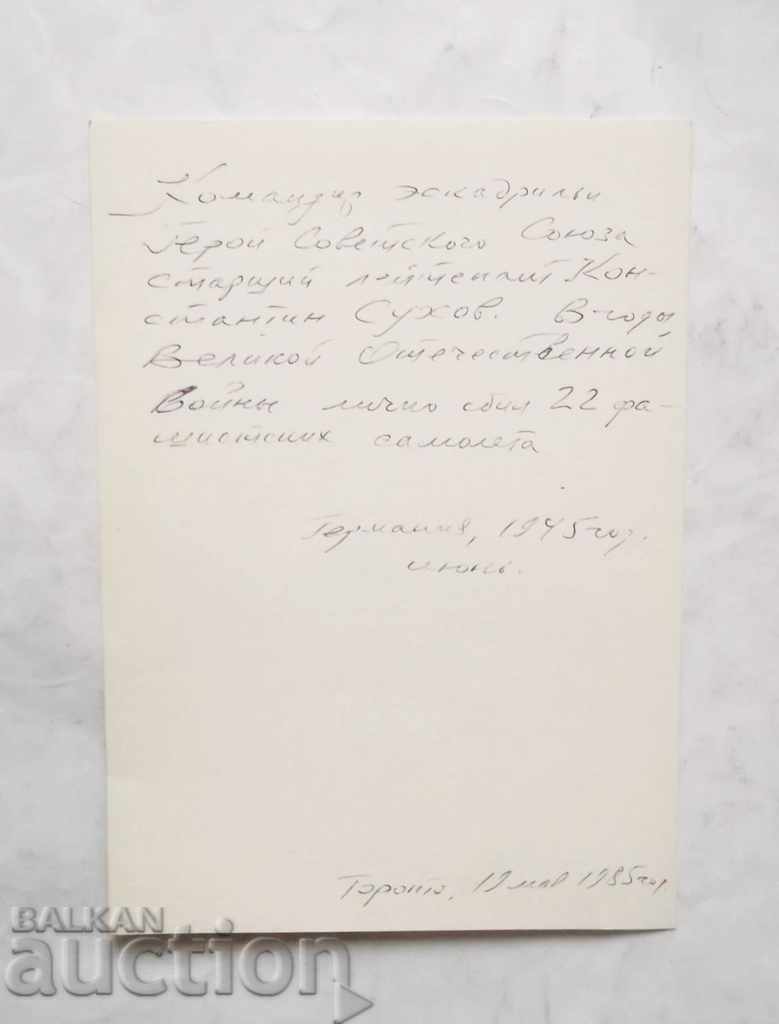 Командир эскадрильи
Герой Советского Союза
старший лейтенант Кон-
стантин Сухов. В годы
Великой Отечественной
Войны лично сбил 22 фа-
шистских самолета
Германия, 1945 год.
июнь.
19 мая 1985 год
BALKAN
auction